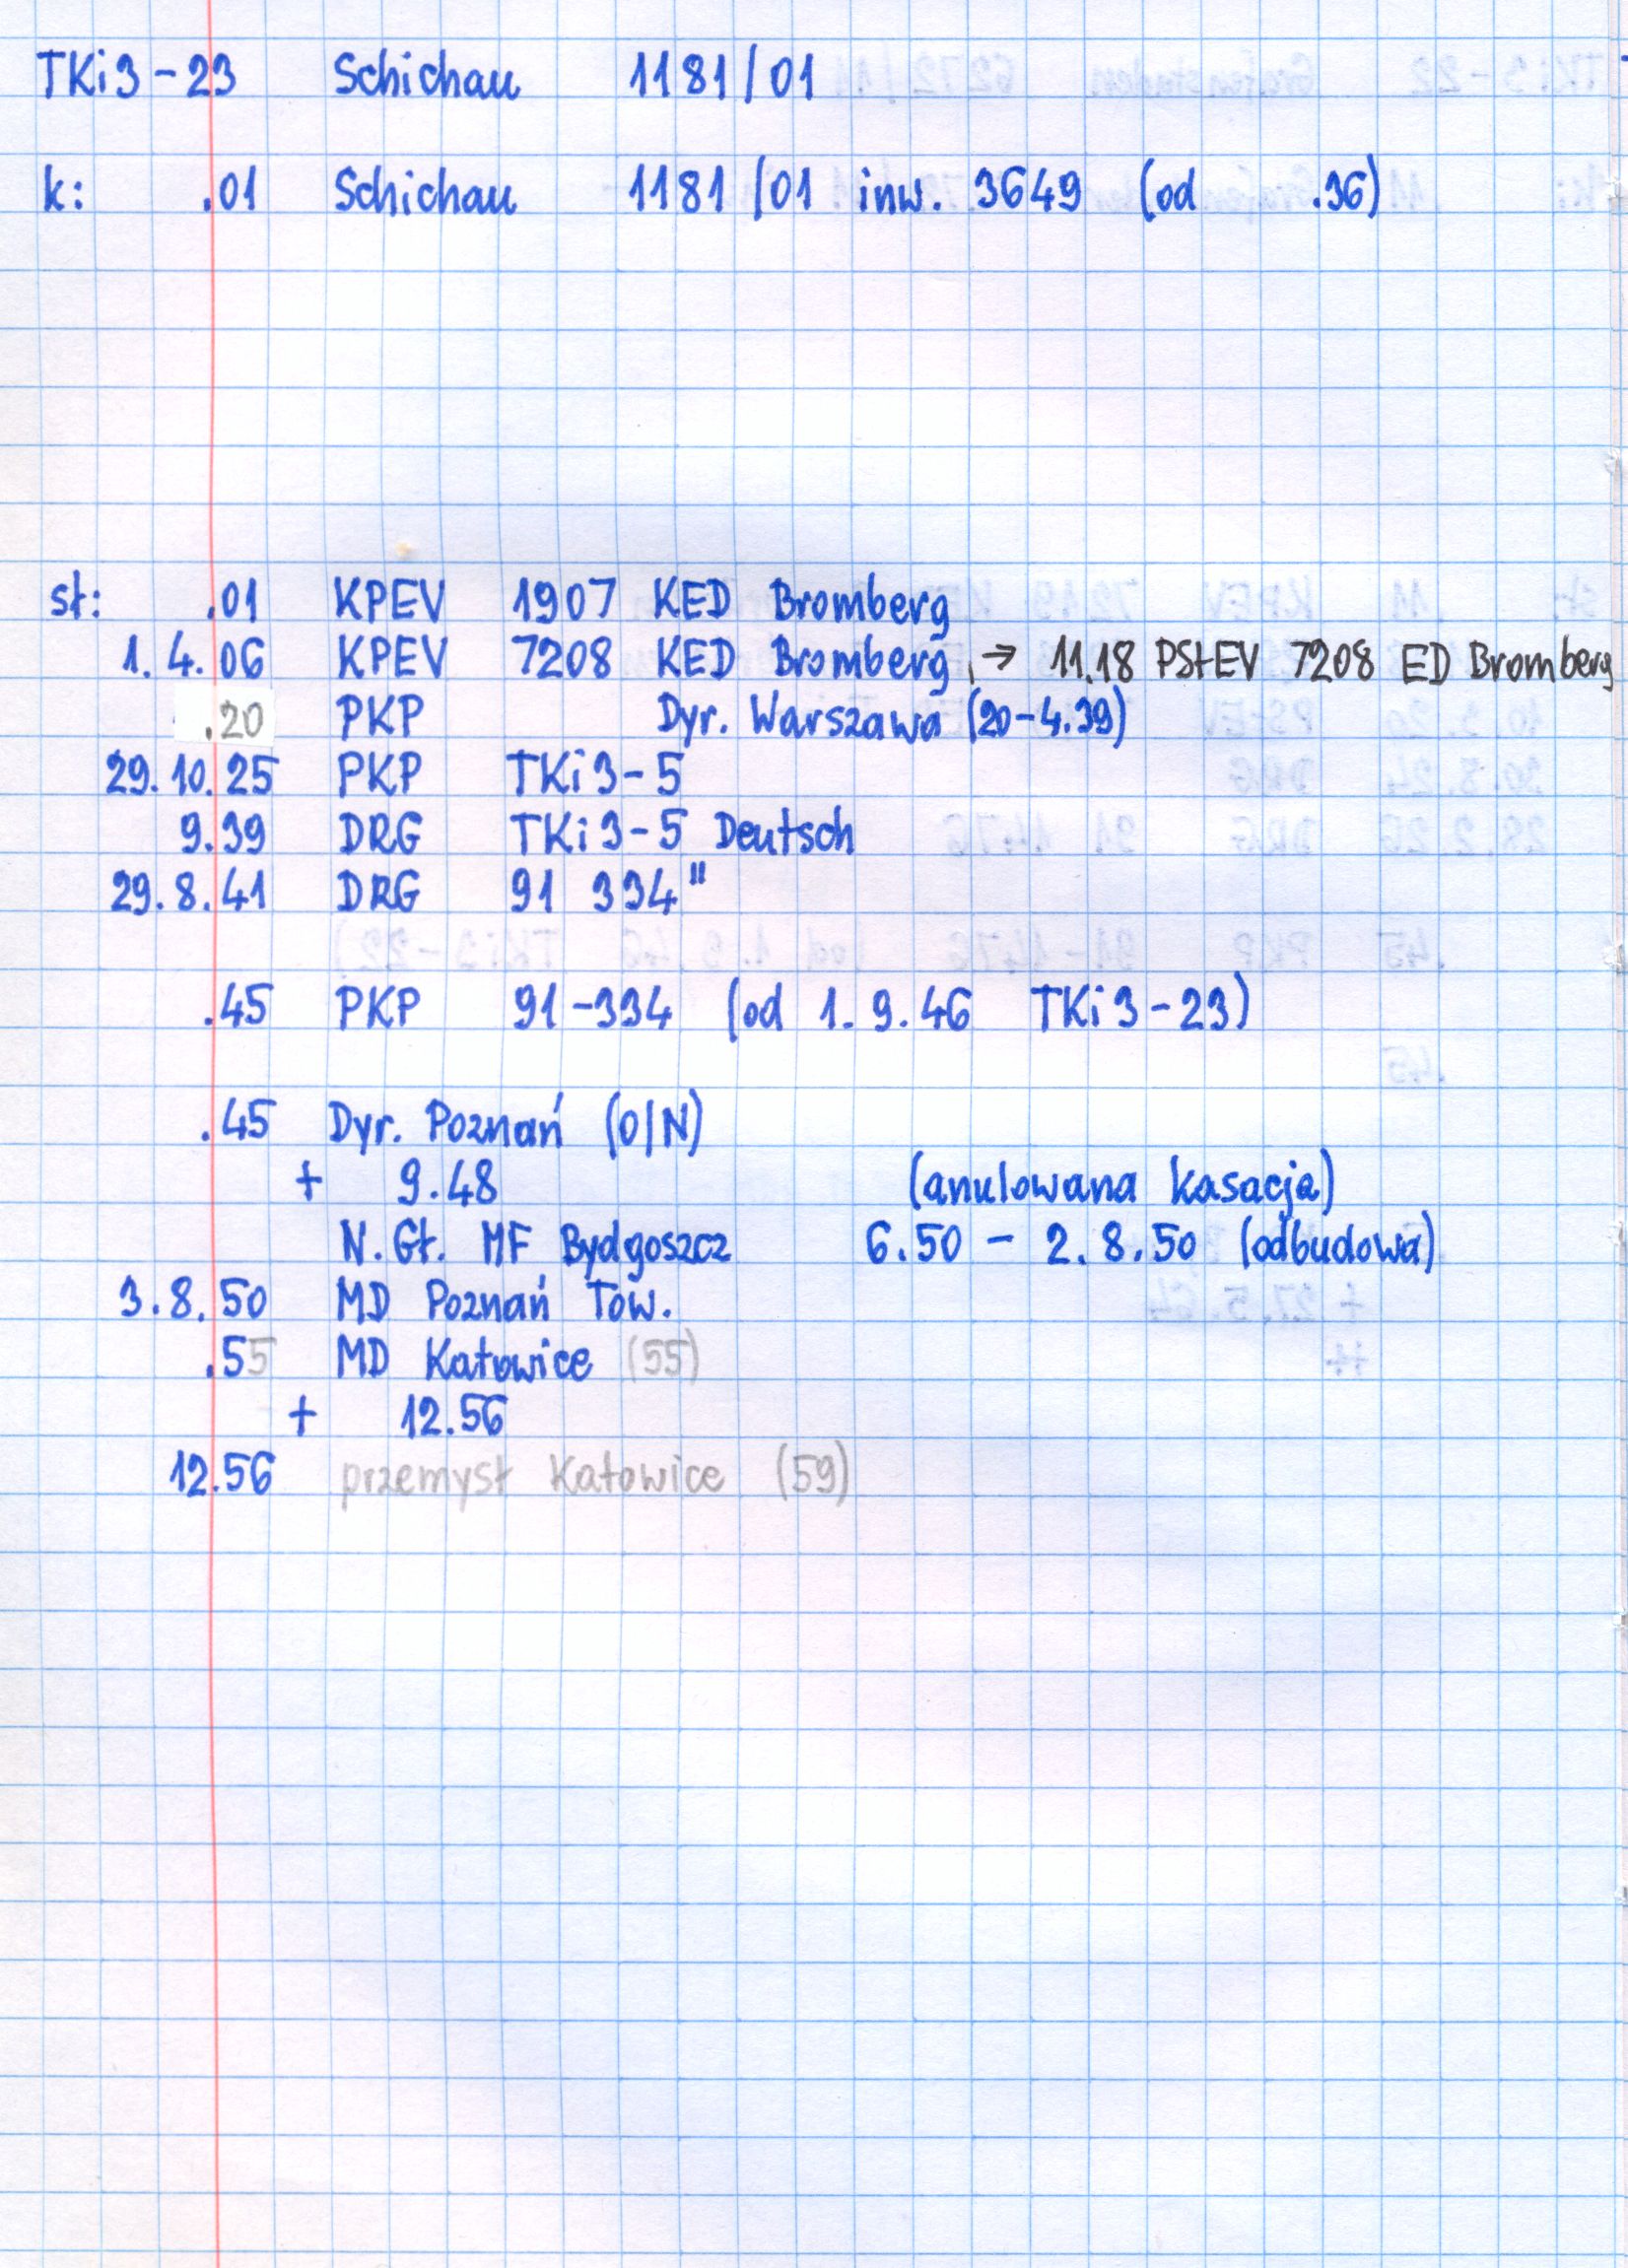 TKi3-23 Schichau 1181/01
k: .01 Schichau 1181/01 inw. 3649 (od .36)
st: .01 KPEV 1907 KED Bromberg
1.4.06 KPEV 7208 KED Bromberg, → 11.18 PStEV 7208 ED Bromberg
.20 PKP Dyr. Warszawa (20-4.39)
29.10.25 PKP TKi3-5
9.39 DRG TKi3-5 Deutsch
29.8.41 DRG 91 334"
.45 PKP 91-334 (od 1.9.46 TKi3-23)
.45 Dyr. Poznań (O/N)
+ 9.48 (anulowana kasacja)
N.Gł. MF Bydgoszcz 6.50 - 2.8.50 (odbudowa)
3.8.50 MD Poznań Tow.
.55 MD Katowice (55)
+ 12.56
12.56 przemysł Katowice (59)